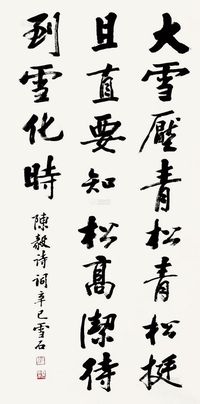 大雪壓青松青松挺
且直要知松高潔待
到雪化時
陳毅诗詞辛巳雪石